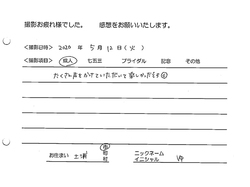 撮影お疲れ様でした。 感想をお願いいたします。
<撮影日時> 2020 年 5月 12日(火)
<撮影項目> 成人 七五三 ブライダル 記念 その他
たくさん声をかけていただいて楽しかったです
お住まい 土浦 市 町 村 ニックネーム イニシャル